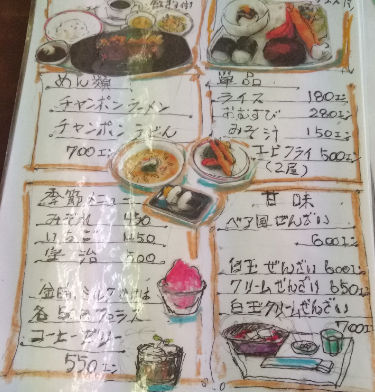 めん類
チャンポンラーメン
チャンポンうどん
700エン
単品
ライス 180エン
おむすび 280エン
みそ汁 150エン
エビフライ 500エン
(2尾)
季節メニュー
みぞれ 450
450
宇治 500
金時、ミルク
各50円プラス
コーヒーゼリー
550エン
甘味
ぜんざい
600エン
白玉ぜんざい 600エン
クリームぜんざい 650エン
白玉クリームぜんざい
700エン